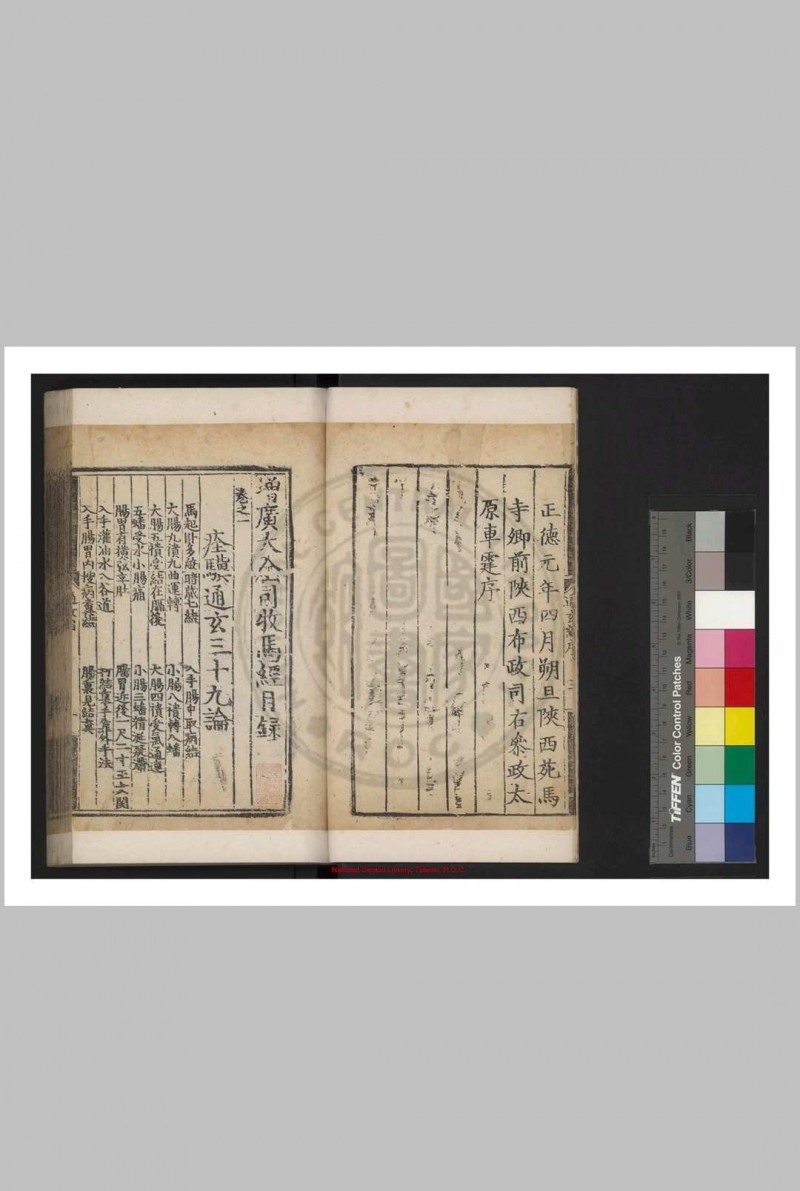 正德元年四月朔旦陝西苑馬
寺卿前陝西布政司右叅政太
原車霆序
增廣大公司收馬經目錄
卷之一
痊驥通玄三十九論
馬起臥多般暗藏七結
入手腸中取病結
大腸九積九曲運轉
小腸八積轉八蟠
大腸五積受結在臈後
大腸四積受氣通運
五蟠受水小腸痛
小腸三蟠積
腸胃有橫弦辛肚
腸胃近後一尺二寸玉女関
入手灌油水入谷道
打結真手法
入手腸胃內搜病意結
腸裏見結糞
National Central Library, Taiwan, R.O.C.
TIFFEN Color Control Patches
Blue
Cyan
Green
Yellow
Red
Magenta
White
3/Color
Black